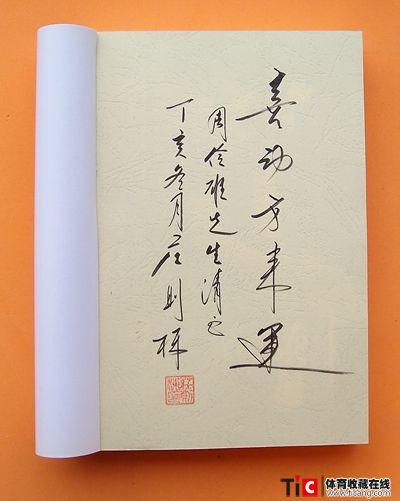 动方来運
周先生清正
丁亥冬月庄则栋
TiC 体育收藏在线
www.tisang.com